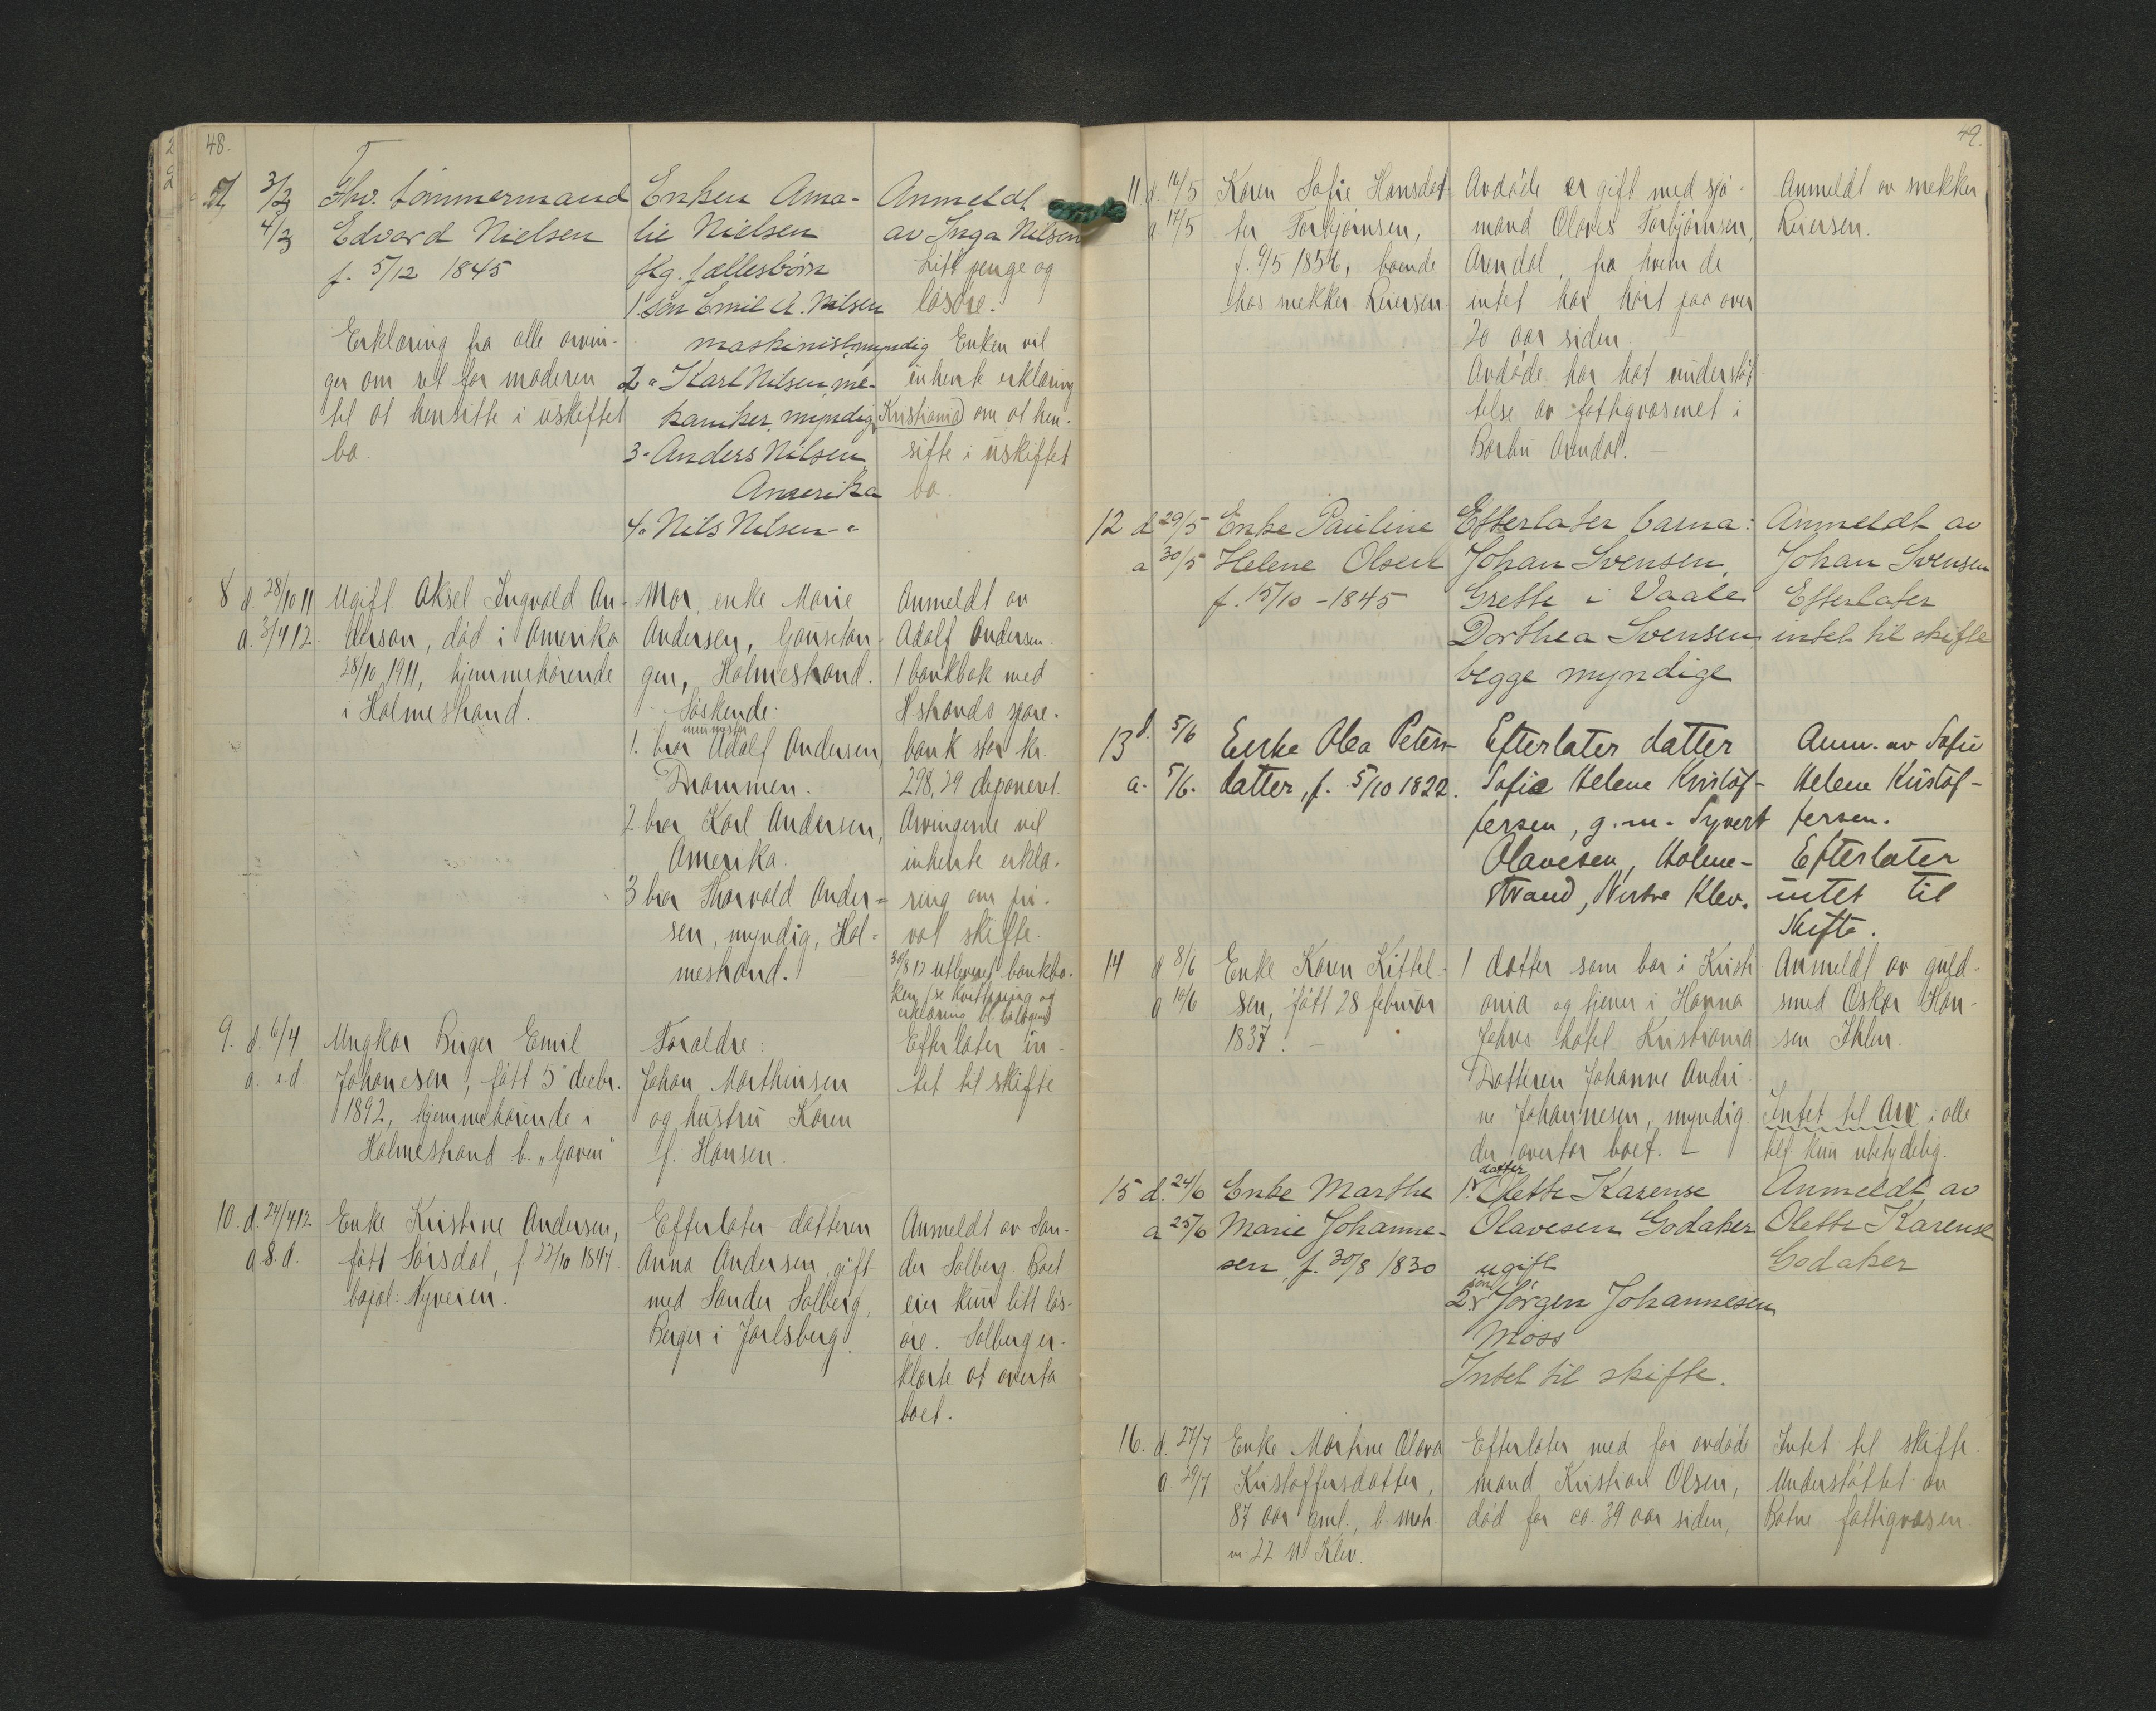 48.
7 3/3 Fhv. tömmermand
4/3 Edvard Nielsen
f. 5/12 1845
Erklæring fra alle arvin-
ger om ret for moderen
til at hensitte i uskiftet
bo.
Enken Ama-
lie Nielsen
flg. fællesbörn
1. sön Emil A. Nilsen
maskinist, myndig
2 " Karl Nilsen, me-
kaniker, myndig, Kristiania
3 " Anders Nilsen
Amerika
4 " Nils Nilsen - "
Anmeldt
av Inga Nilsen
Litt penge og
lösöre.
Enken vil
inhente erklæring
om at hen-
sitte i uskiftet
bo.
8 d. 28/10 11 Ugift Aksel Ingvald An-
a. 3/4 12. derson, död i Amerika
28/10 1911, hjemmehörende
i Holmestrand.
Mor, enke Marie
Andersen, Gausetan-
gen, Holmestrand.
Söskende:
1. bror Adolf Andersen,
Drammen.
2 bror Karl Andersen,
Amerika.
3 bror Thorvald Ander-
sen, myndig, Hol-
mestrand.
Anmeldt av
Adolf Andersen.
1 bankbok med
Hstrands spare-
bank stor kr.
298,29 deponeret.
Arvingerne vil
inhente erklæ-
ring om pri-
vat skifte.
30/8 12 utleveret bankbo-
ken (se kvittering og
erklæring bl. bilagene
9. d. 6/4 Ungkar Birger Emil
a. s.d. Johanesen, fött 5' decbr.
1892, hjemmehörende i
Holmestrand b. "Gaven"
Forældre:
Johan Marthinsen
og hustru Karen
f. Hansen.
Efterlater in-
tet til skifte
10. d. 24/4 12 Enke Kristine Andersen,
a s. d. fött Sörsdal, f. 22/10 1847
bopæl: Nyveien.
Efterlater datteren
Anna Andersen, gift
med Sander Solberg,
Berger i Jarlsberg.
Anmeldt av San-
der Solberg. Boet
eier kun litt lös-
öre. Solberg er-
klærte at overta
boet.
49.
11 d. 16/5 Karen Sofie Hansdat-
a 17/5 ter Torbjörnsen,
f. 9/5 1856, boende
hos mekker Reiersen.
Avdöde er gift med sjö-
mand Olaves Torbjörnsen,
Arendal, fra hvem de
intet har hört paa over
20 aar siden.
Avdöde har hat understöt-
telse av fattigvæsenet i
Barbu Arendal.
Anmeldt av mekker
Reiersen.
12 d 29/5 Enke Pauline
a 30/5 Helene Olsen
f. 15/10 - 1845
Efterlater barna:
Johan Svensen,
Grette i Vaale
Dorthea Svensen
begge myndige
Anmeldt av
Johan Svensen
Efterlater
intet til skifte
13 d. 5/6 Enke Olea Peters-
a. 5/6. datter, f. 5/10 1822.
Efterlater datter
Sofie Helene Kristof-
fersen, g. m. Syvert
Olavesen, Holme-
strand, Nirdre Klev.
Anm. av Sofie
Helene Kristof-
fersen.
Efterlater
intet til
skifte.
14 d 8/6 Enke Karen Kittel-
a 10/6 sen, fött 28 februar
1837.
1 datter som bor i Kristi
ania og tjener i Hanna
Jahrs hotel Kristiania
Datteren Johanne Andri-
ne Johannesen, myndig
der overtar boet.
Anmeldt av guld-
smed Oskar Han-
sen Ihlen.
Intet til arv i alle
tilf. kun ubetydelig.
15 d. 24/6 Enke Marthe
a 25/6 Marie Johanne-
sen, f. 30/8 1830
1. datter Olette Karense
Olavesen Godaker
ugift
2. sön Jörgen Johannesen
Moss
Intet til skifte.
Anmeldt av
Olette Karense
Godaker
16. d. 27/7 Enke Martine Olava
a. 29/7 Kristoffersdatter,
87 aar gml., b. matr.
nr 22 N Klev.
Efterlater med för avdöde
mand Kristian Olsen,
död for ca. 39 aar siden,
Intet til skifte.
Understöttet av
Botne fattigvæsen.